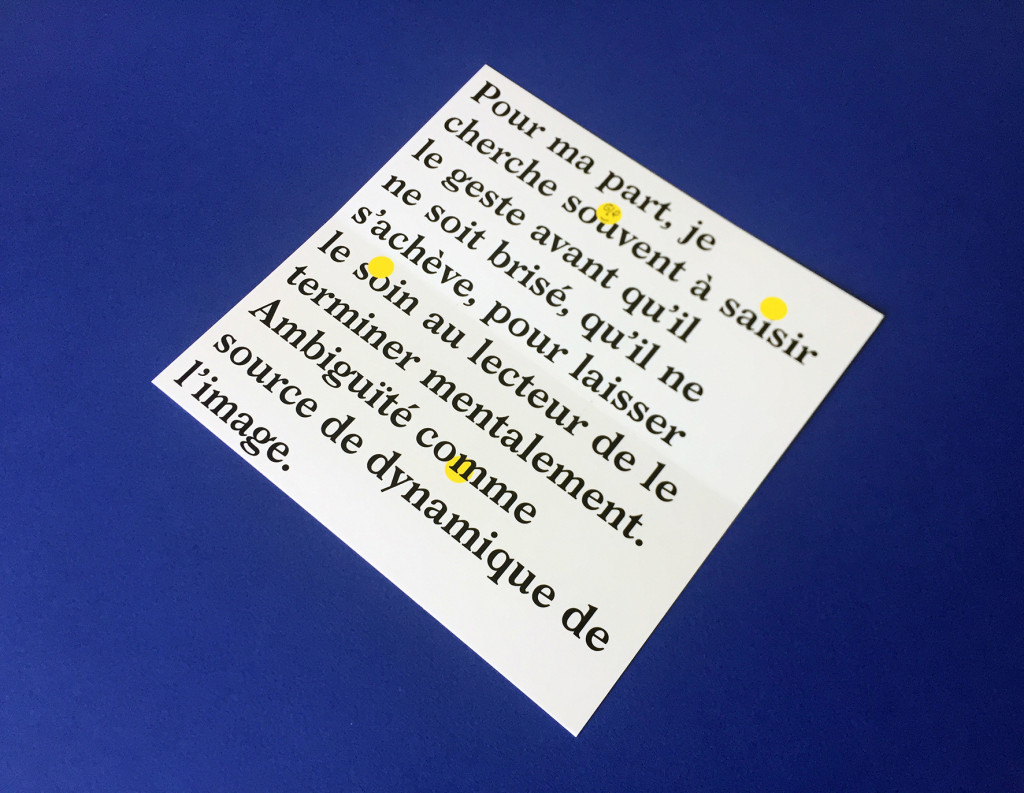 Pour ma part, je
cherche souvent à saisir
le geste avant qu’il
ne soit brisé, qu’il ne
s’achève, pour laisser
le soin au lecteur de le
terminer mentalement.
Ambiguïté comme
source de dynamique de
l’image.